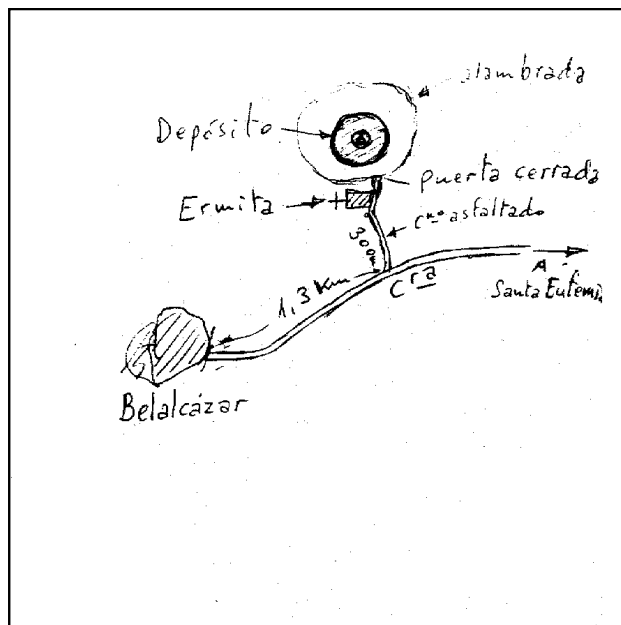 alambrada
Depósito
puerta cerrada
Ermita
cno asfaltado
300m
1,3 Km
Cra
A
Santa Eufemia
Belalcázar